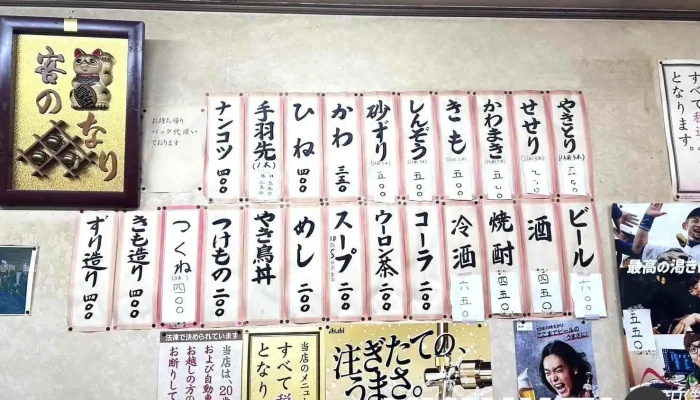 客の
なり
お持ち帰り
パック代頂いて
おります
やきとり
せせり
かわまき 五〇〇
きも 五〇〇
しんぞう 五〇〇
砂ずり 五〇〇
かわ 三五〇
ひね 四〇〇
手羽先
ナンコツ 四〇〇
ビール 六〇〇
酒 四五〇
焼酎 四五〇
冷酒 六五〇
コーラ 二〇〇
ウーロン茶 二〇〇
スープ 二〇〇
めし 二〇〇
やき鳥丼
つけもの 二〇〇
つくね 四〇〇
きも造り 四〇〇
ずり造り 四〇〇
すべて税
となります。
最高の渇き
五五〇
法律で決められています
当店は、20
および自動車
お越しの方の
お断りして
当店のメニュー
すべて税
となり
Asahi
注ぎたての、
うまさ。